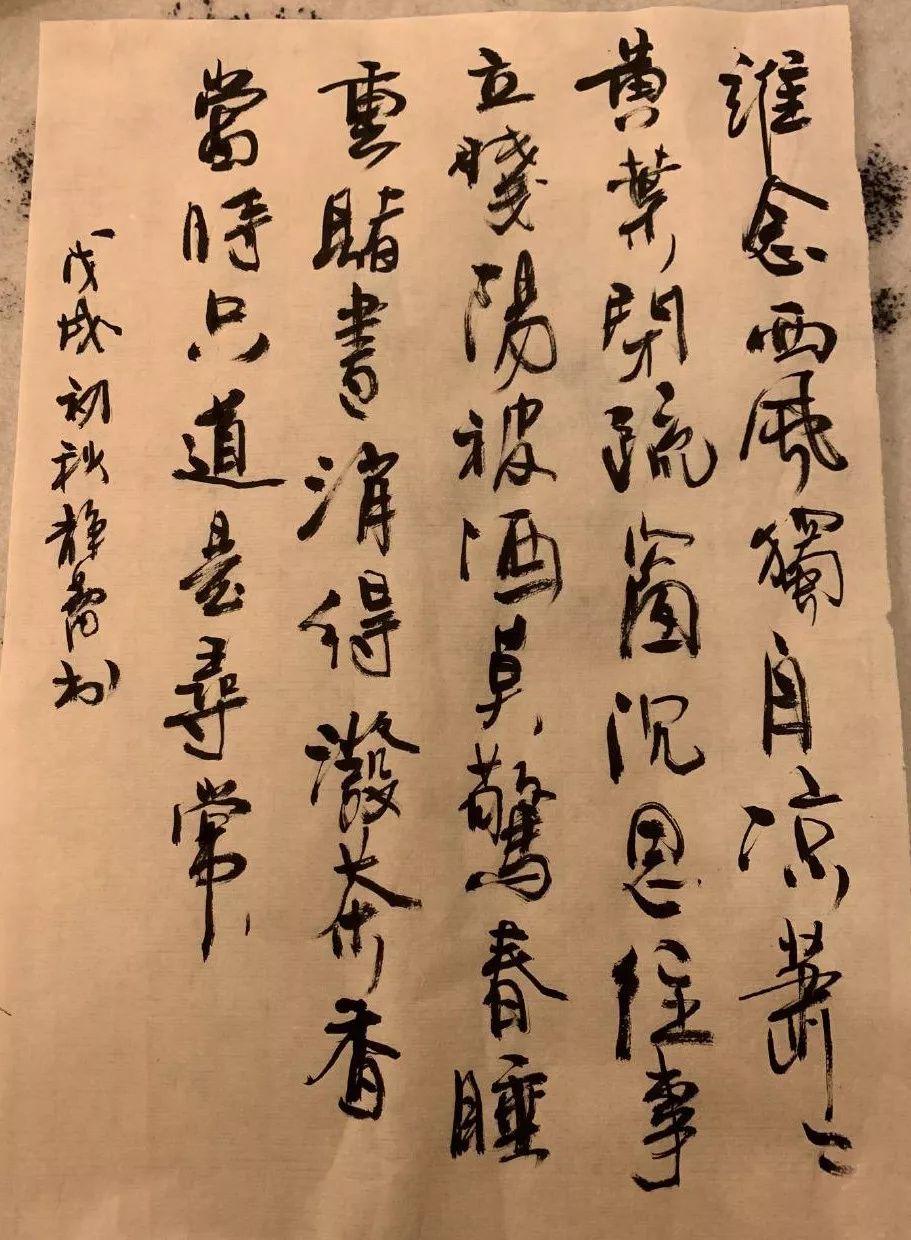 誰念西風獨自涼蕭〻
黄葉閉疏窗沉思往事
立殘陽被酒莫驚春睡
重賭書消得潑茶香
當時只道是尋常
戊戌初秋静